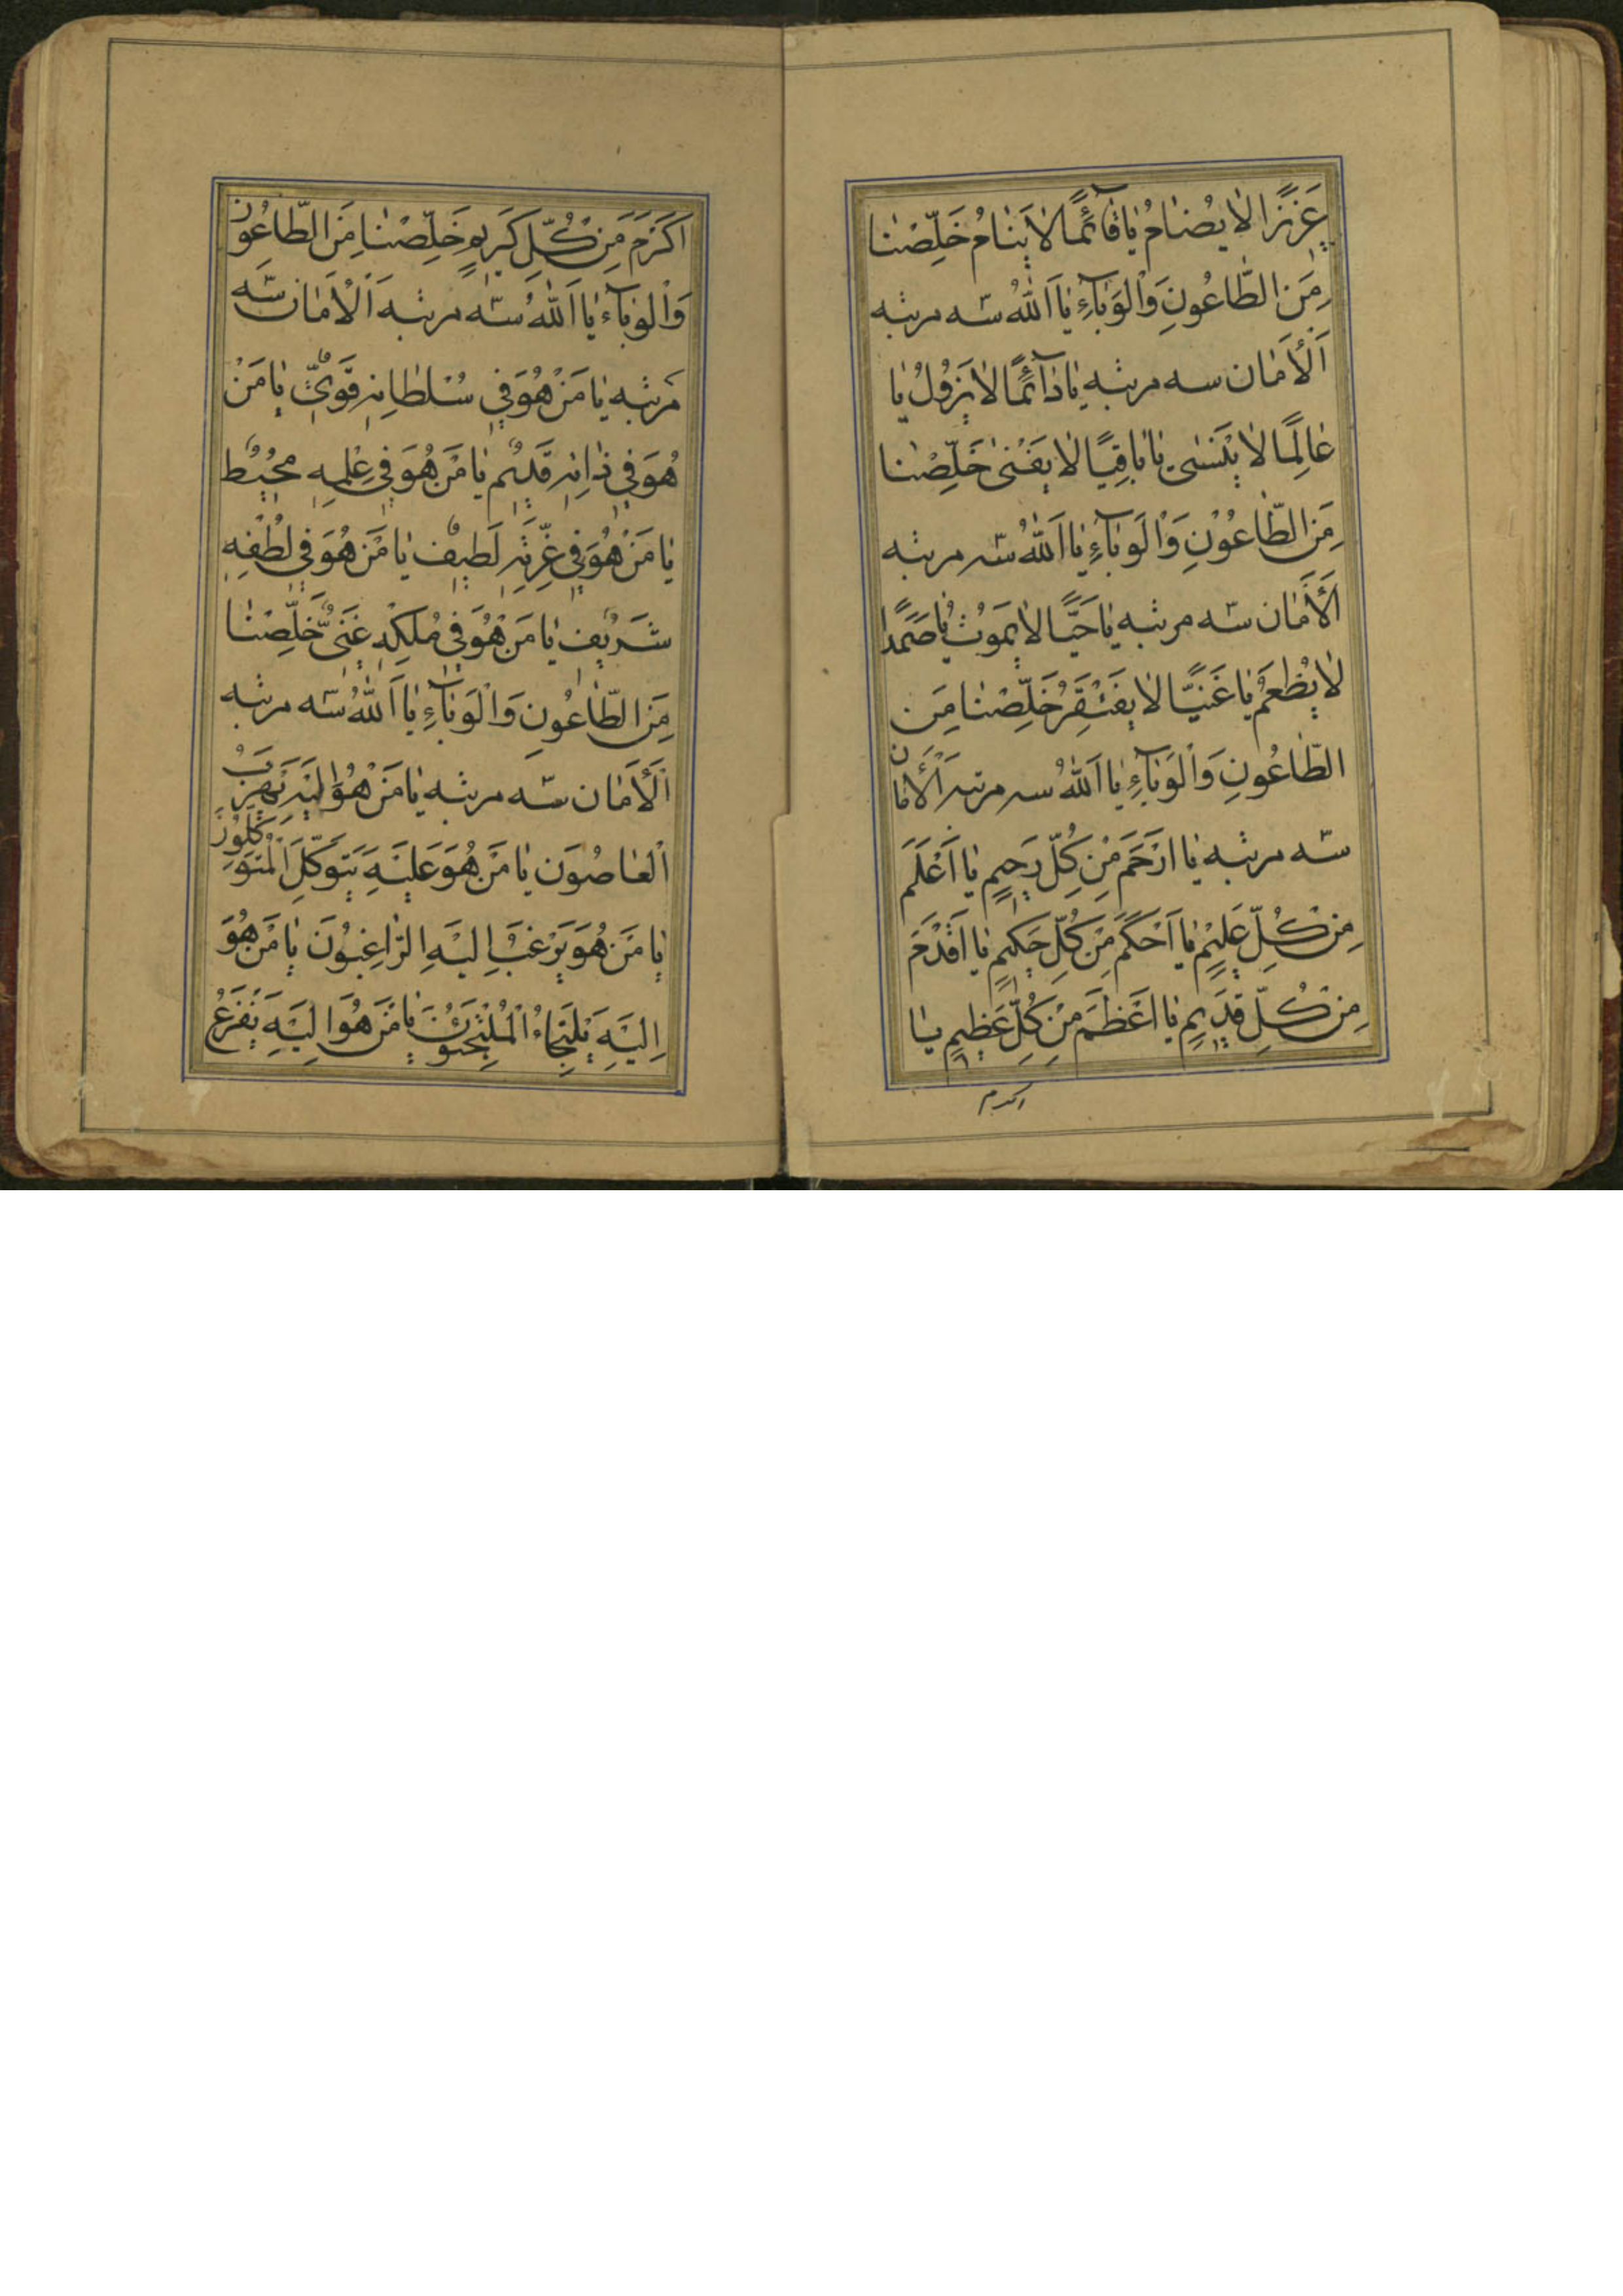 عَزيزًا لا يُضامُ يا قآئِمًا لا يَنامُ خَلِّصْنا
مِنَ الطّاعُونِ وَالْوَبآءِ يا اَللّٰهُ سه مرتبه
اَلْاَمان سه مرتبه يا دآئِمًا لا يَزُولُ يا
عالِمًا لا يَنْسىٰ يا باقِيًا لا يَفْنىٰ خَلِّصْنا
مِنَ الطّاعُوْنِ وَالْوَبآءِ يا اَللّٰهُ سه مرتبه
اَلْاَمان سه مرتبه يا حَيًّا لا يَمُوتُ يا صَمَدًا
لا يُطْعَمُ يا غَنِيًّا لا يَفْتَقِرُ خَلِّصْنا مِنَ
الطّاعُونِ وَالْوَبآءِ يا اَللّٰهُ سه مرتبه اَلْاَمان
سه مرتبه يا اَرْحَمَ مِنْ كُلِّ رَحيمٍ يا اَعْلَمَ
مِنْ كُلِّ عَليمٍ يا اَحْكَمَ مِنْ كُلِّ حَكيمٍ يا اَقْدَمَ
مِنْ كُلِّ قَديمٍ يا اَعْظَمَ مِنْ كُلِّ عَظيمٍ يا
اكرم
اَكْرَمَ مِنْ كُلِّ كَريمٍ خَلِّصْنا مِنَ الطّاعُونِ
وَالْوَبآءِ يا اَللّٰهُ سه مرتبه اَلْاَمان سه
مرتبه يا مَنْ هُوَ في سُلْطانِهِ قَوِيٌّ يا مَنْ
هُوَ في ذاتِهِ قَديمٌ يا مَنْ هُوَ في عِلْمِهِ مُحيطٌ
يا مَنْ هُوَ في عِزَّتِهِ لَطيفٌ يا مَنْ هُوَ في لُطْفِهِ
شَريفٌ يا مَنْ هُوَ في مُلْكِهِ غَنِيٌّ خَلِّصْنا
مِنَ الطّاعُونِ وَالْوَبآءِ يا اَللّٰهُ سه مرتبه
اَلْاَمان سه مرتبه يا مَنْ هُوَ اِلَيْهِ يَهْرَبُ
الْعاصُونَ يا مَنْ هُوَ عَلَيْهِ يَتَوَكَّلُ الْمُتَوَكِّلُونَ
يا مَنْ هُوَ يَرْغَبُ اِلَيْهِ الرّاغِبُونَ يا مَنْ هُوَ
اِلَيْهِ يَلْتَجِاءُ الْمُلْتَجِئُونَ يا مَنْ هُوَ اِلَيْهِ يَفْزَعُ